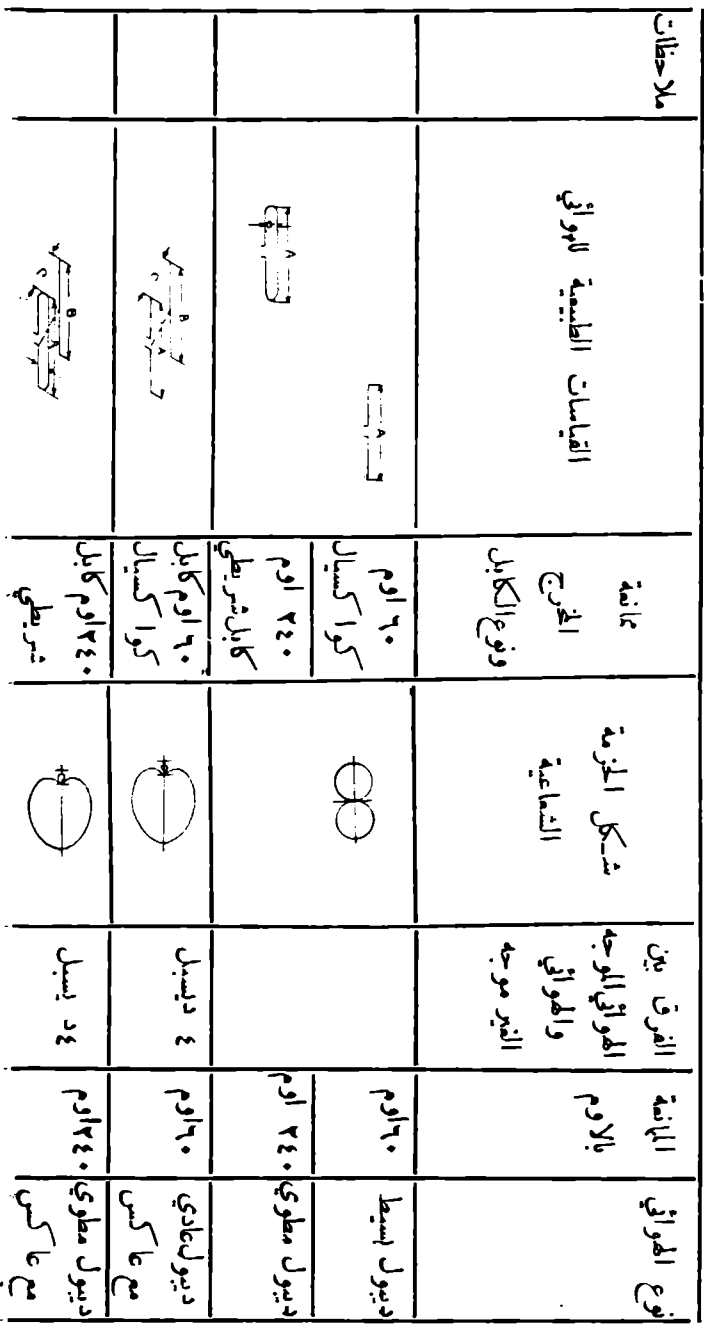 نوع الهوائي
الممانعة
بالاوم
الفرق بين
الهوائي الموجه
والهوائي
الغير موجه
شكل الحزمة
الشعاعية
ممانعة
الخرج
ونوع الكابل
القياسات الطبيعية للهوائي
ملاحظات
ديبول بسيط
٦٠ اوم
٦٠ اوم
كوا كسيال
A
ديبول مطوي
٢٤٠ اوم
٢٤٠ اوم
كابل شريطي
A
ديبول عادي
مع عاكس
٦٠ اوم
٤ ديسبل
٦٠ اوم كابل
كوا كسيال
B
A
ديبول مطوي
مع عاكس
٢٤٠ اوم
٤ د يسبل
٢٤٠ اوم كابل
شريطي
B
A
C